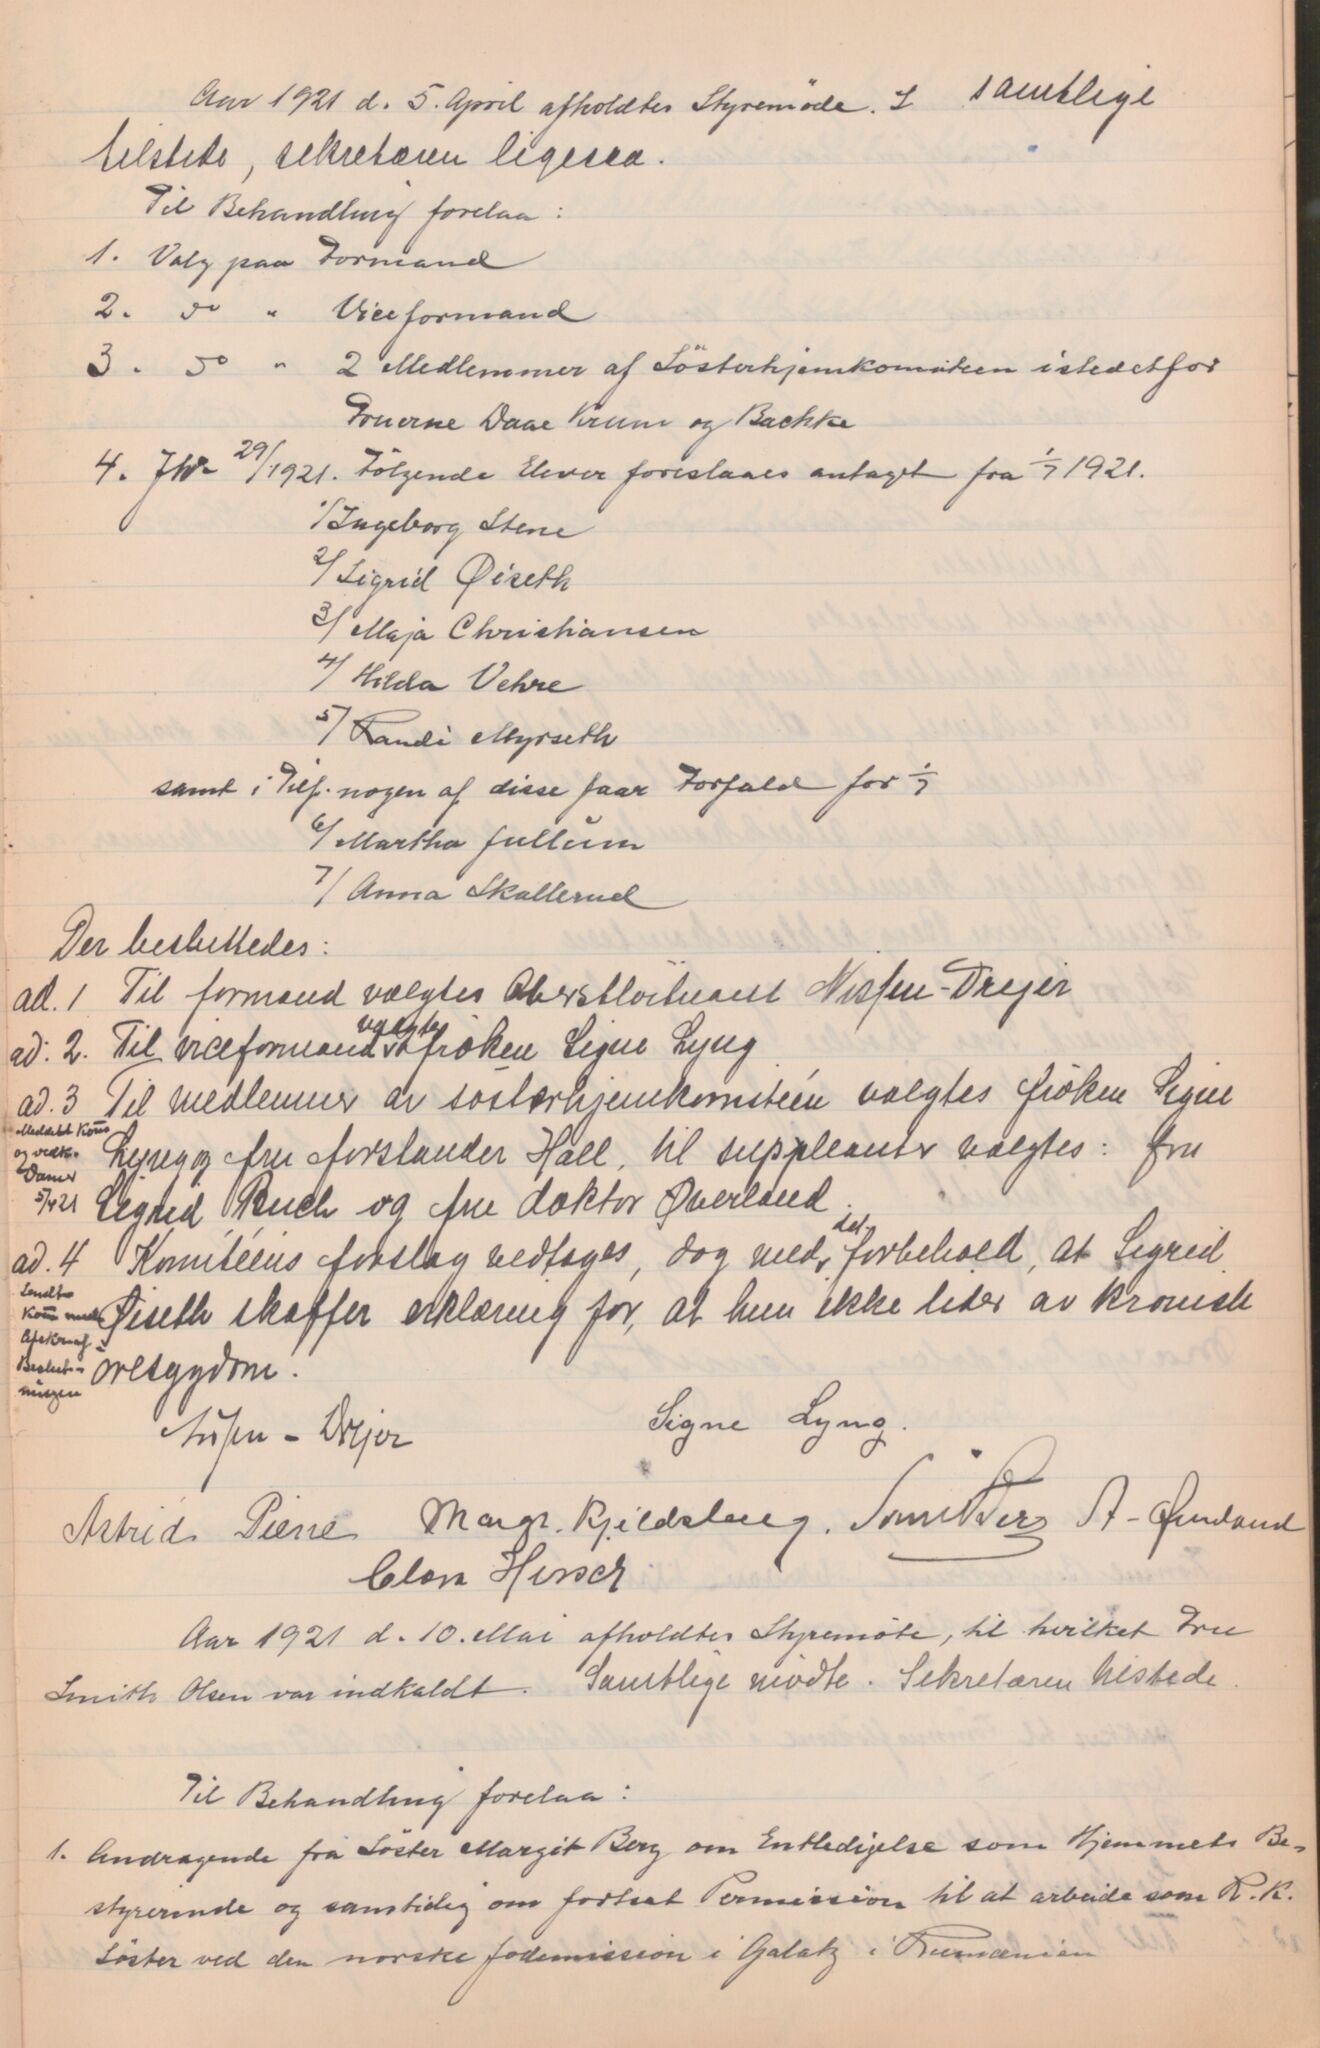 Aar 1921 d. 5. April afholdtes Styremöde. samtlige
tilstede, sekretæren ligesaa.
Til Behandling forelaa:
1. Valg paa Formand
2. do " Viceformand
3. do " 2 Medlemmer af Sösterhjemkomiteen istedetfor
Fruerne Daae Krum og Backke
4. Jnr 29/1921. Fölgende Elever foreslaaes antaget fra 1/7 1921.
1/ Ingeborg Stene
2/ Sigrid Øiseth
3/ Maja Christiansen
4/ Hilda Vehre
5/ Randi Myrseth
samt i Tilf. nogen af disse faar Forfald for 1/7
6/ Martha Jullum
7/ Anna Skallerud
Der besluttedes:
ad. 1 Til formand vælgtes Oberstlöitnant Nissen-Drejer
ad. 2. Til viceformand valgtes fröken Signe Lyng
ad. 3 Til medlemmer av sösterhjemkomitéen valgtes fröken Signe
Meddelt Kom
og vedk.
Damer
5/4 21
Lyng og fru forstander Hall, til suppleanter valgtes: fru
Sigrid Buch og fru doktor Øverland.
ad. 4 Komitéens forslag vedtages, dog med det forbehold, at Sigrid
Sendt
Kom med
Afskr af
Beslut-
ningen
Øiseth skaffer erklæring for, at hun ikke lider av kronisk
öresygdom.
Nissen-Drejer Signe Lyng.
Astrid Piene Margr. Kjeldsberg. A. Øverland
Clara Hirsch
Aar 1921 d. 10. Mai afholdtes Styremöte, til hvilket Fru
Smith Olsen var indkaldt. Samtlige mödte. Sekretæren tilstede.
Til Behandling forelaa:
1. Andragende fra Söster Margit Berg om Entledigelse som Hjemmets Be-
styrerinde og samtidig om fortsat Permission til at arbeide som R.K.
Söster ved den norske Jödemission i Galatz i Rumænien